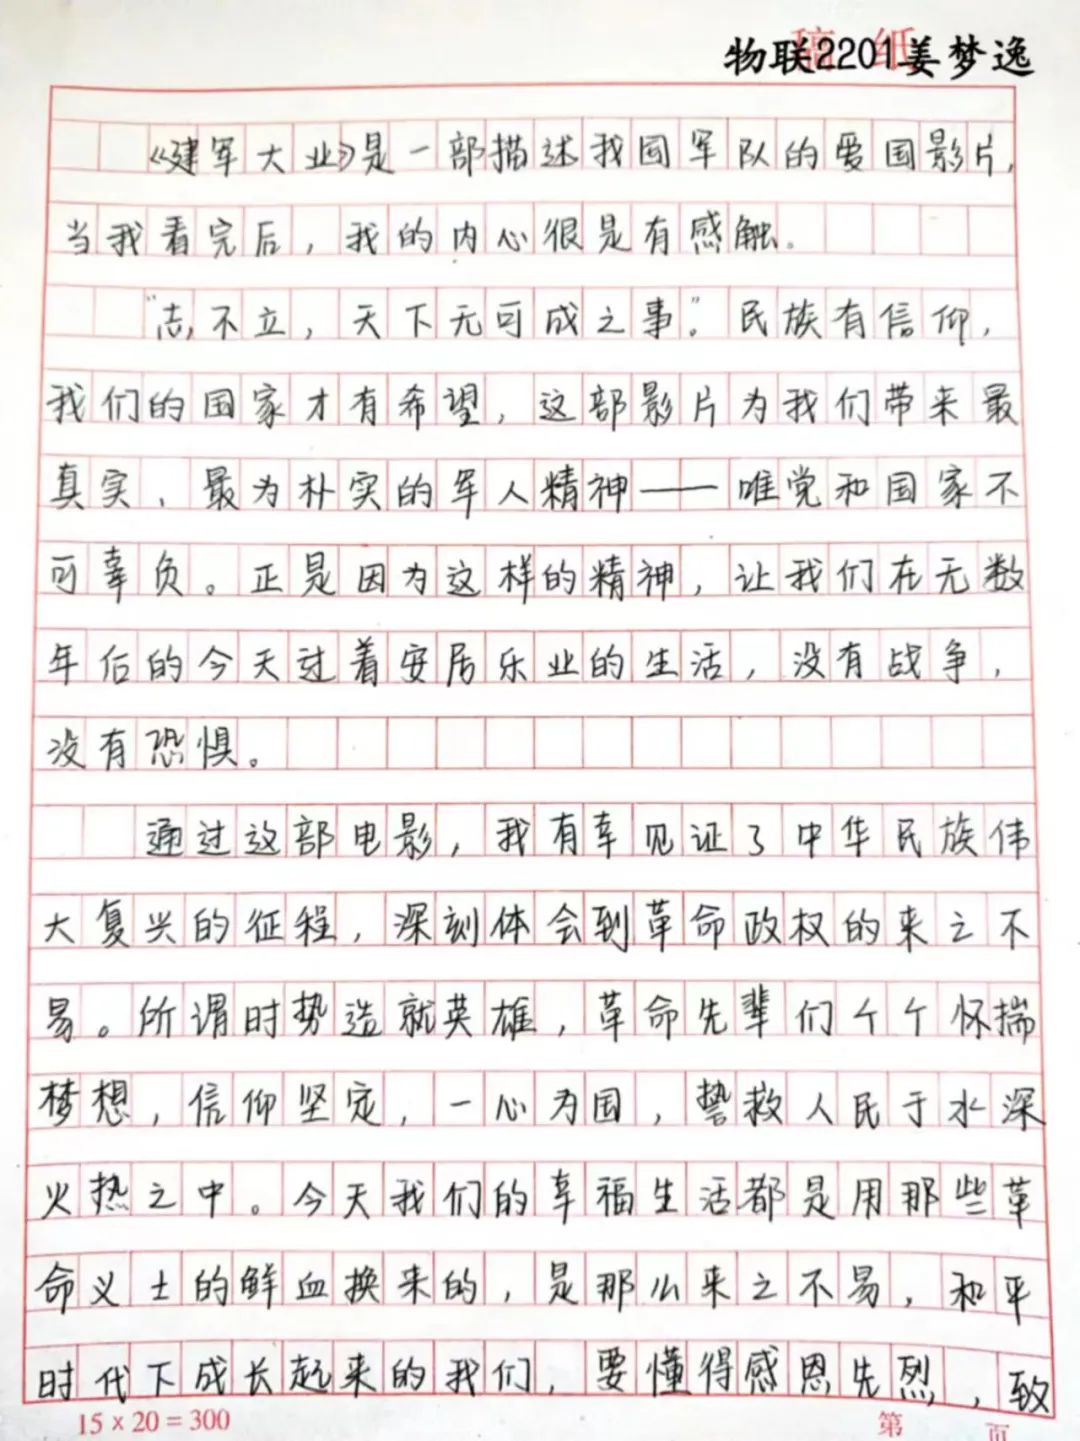 稿 纸
物联2201姜梦逸
《建军大业》是一部描述我国军队的爱国影片,
当我看完后，我的内心很是有感触。
“志不立，天下无可成之事”。民族有信仰，
我们的国家才有希望，这部影片为我们带来最
真实、最为朴实的军人精神——唯党和国家不
可辜负。正是因为这样的精神，让我们在无数
年后的今天过着安居乐业的生活，没有战争，
没有恐惧。
通过这部电影，我有幸见证了中华民族伟
大复兴的征程，深刻体会到革命政权的来之不
易。所谓时势造就英雄，革命先辈们个个怀揣
梦想，信仰坚定，一心为国，誓救人民于水深
火热之中。今天我们的幸福生活都是用那些革
命义士的鲜血换来的，是那么来之不易，和平
时代下成长起来的我们，要懂得感恩先烈，致
15×20=300
第 页